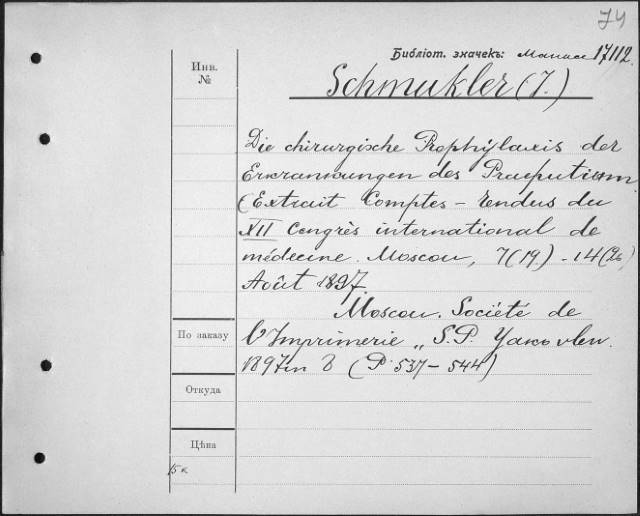 74
Библіот. значекъ: Манасс 17112.
Инв.
№
Schmukler (J.)
Die chirurgische Prophylaxis der
Erkrankungen des Praeputium.
(Extrait Comptes-rendus du
XII Congrès international de
médecine. Moscou, 7(19.) - 14(26)
Août 1897.
Moscou. Société de
l'Imprimerie „S.P. Yakovlev.
1897 in 8 (P. 537-544)
По заказу
Откуда
Цѣна
15 к